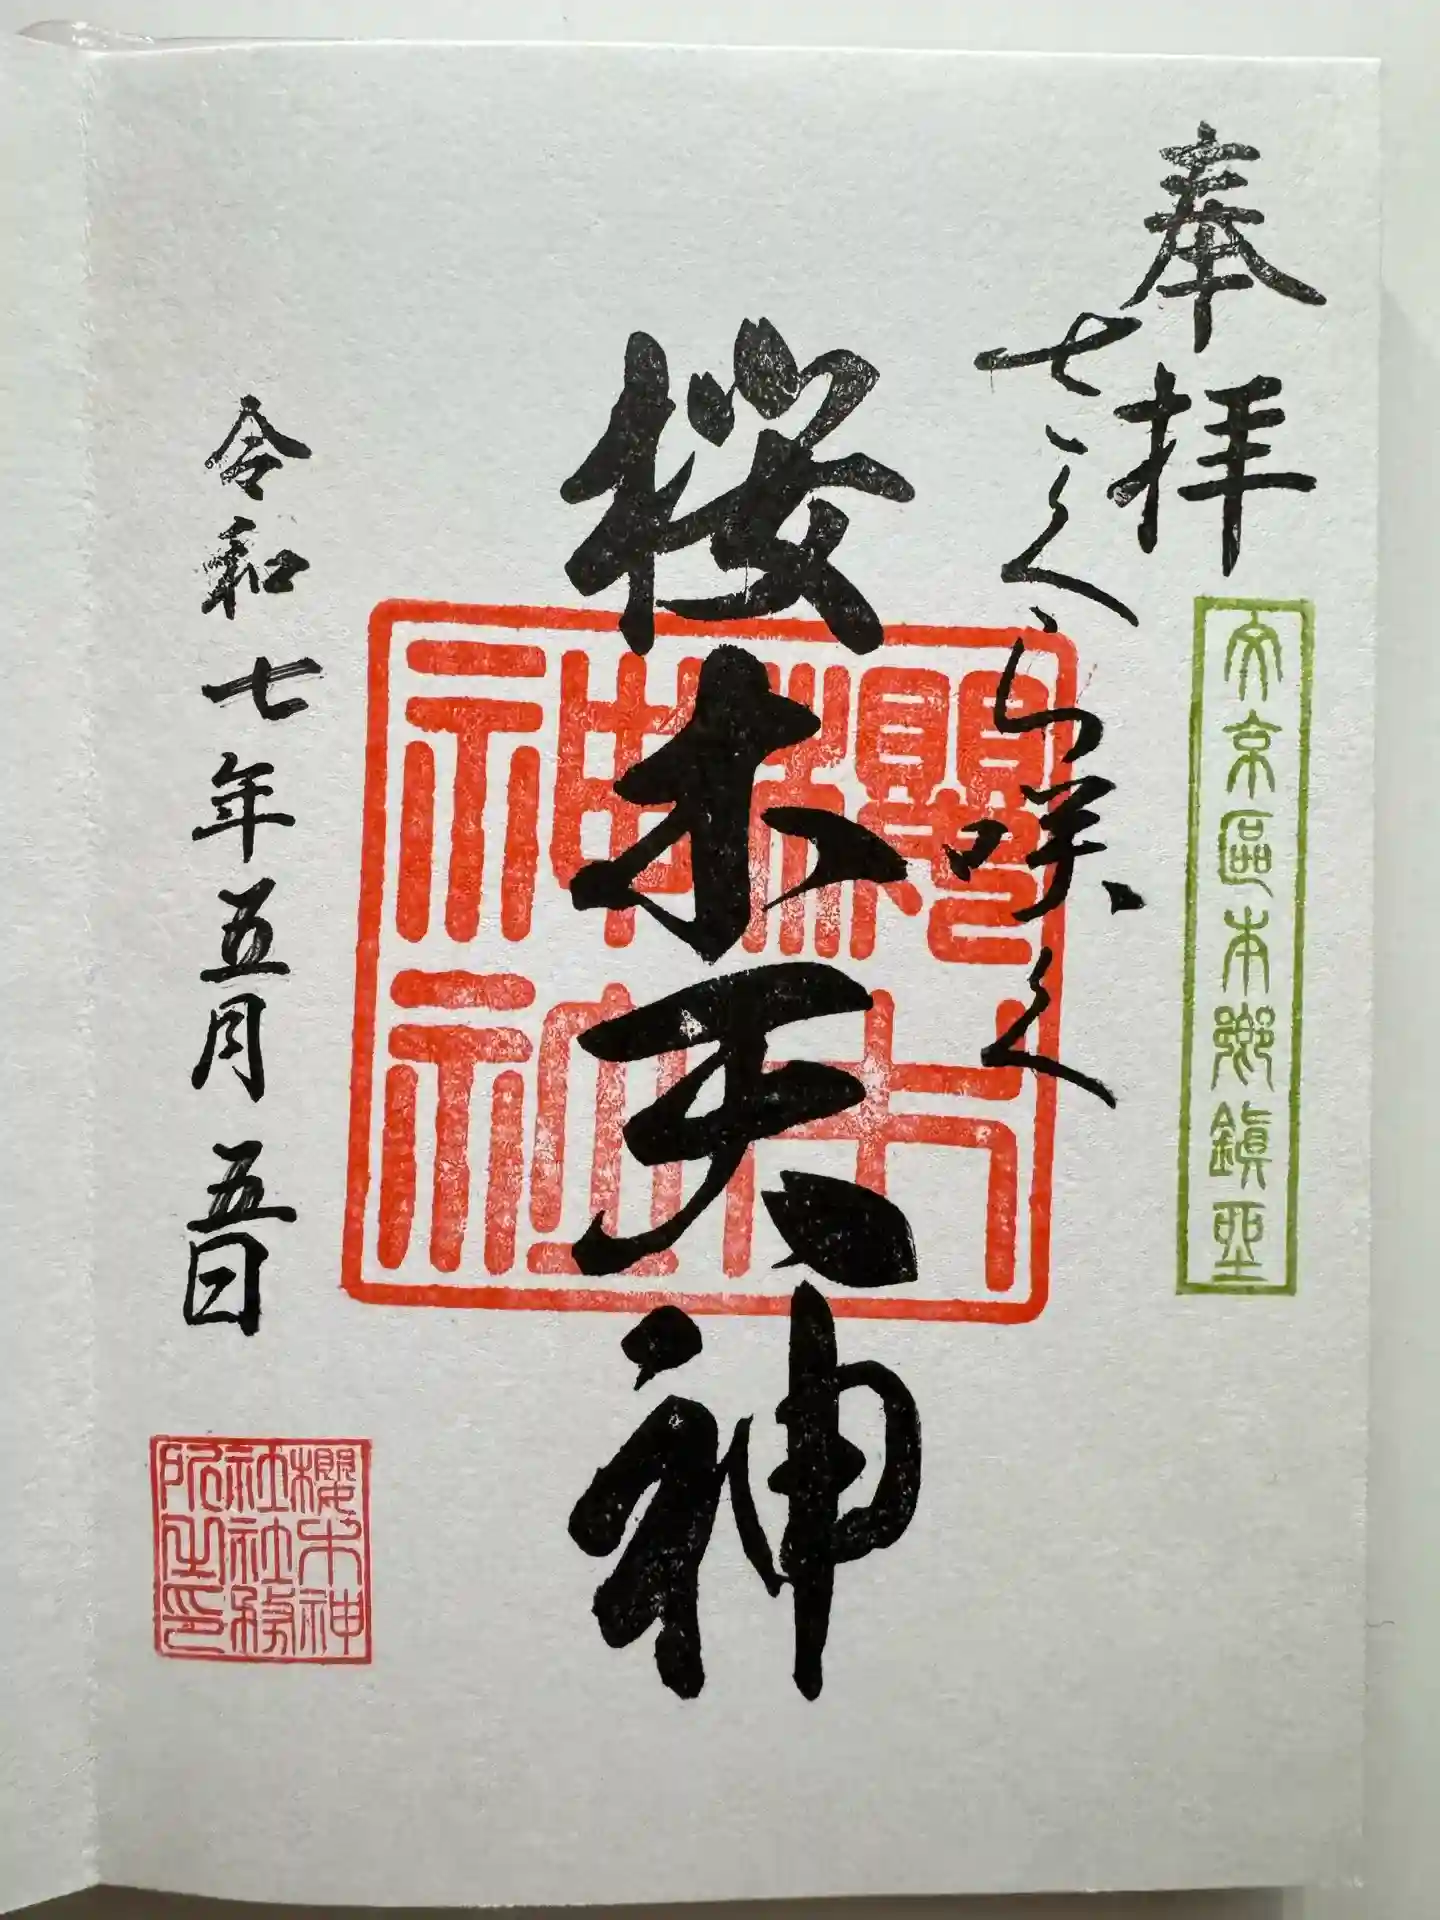 奉拝
文京區本郷鎮坐
さくら咲く
桜木天神
櫻木神社
令和七年五月五日
櫻木神社社務所之印